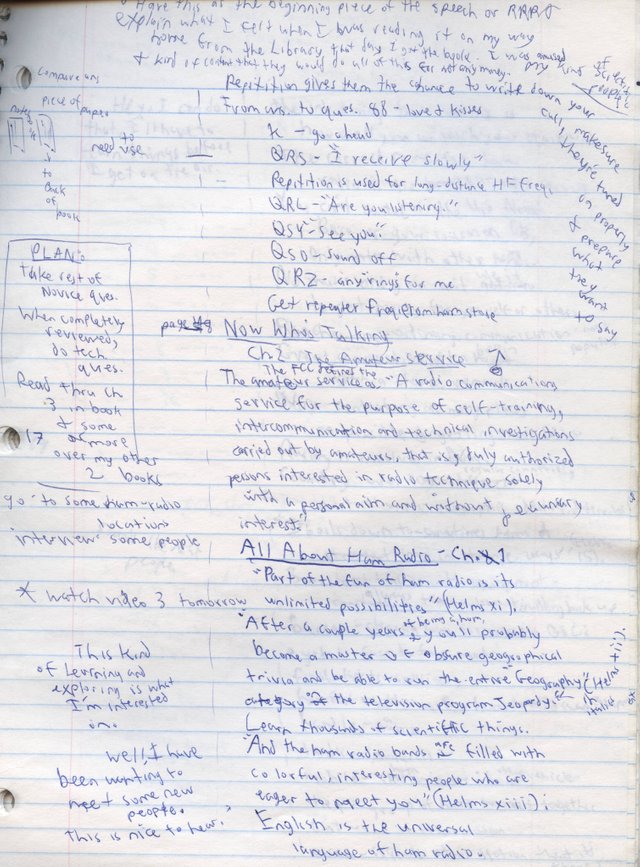 Have this as the beginning piece of the speech or
explain what I felt when I was reading it on my way
home from the Library that day I got the book. I was amused
& kind of content that they would do all of this for not any money. my kind of
scientific
people
Repitition gives them the chance to write down your
call, make sure
they're tuned
in properly
& prepare
what
they
want
to say
From ars. to ques. 88 - love & kisses
K - go ahead
QRS - "I receive slowly"
Repitition is used for long-distance HF freq.
QRL - "Are you listening."
QSY - "See you"
QSO - sound off
QRZ - any "rings" for me
Get repeater freq. from ham store
Compare ans
piece of paper
notes
to
back
of
book
need to
use
PLAN:
Take rest of
Novice ques.
When completely
reviewed,
do tech
ques.
Read thru ch
3 in book
& some
of more
over my other
2 books
17
go to some ham-radio
locations
interview some people
* watch video 3 tomorrow
This kind
of learning and
exploring is what
I'm interested
in.
Well, I have
been wanting to
meet some new
people.
This is nice to hear.
page
Now Who's Talking
Ch. 2 The Amateur Service
The FCC defines the
The amateur service as: "A radio communication
service for the purpose of self-training,
intercommunication and technical investigations
carried out by amateurs, that is, duly authorized
persons interested in radio technique solely
with a personal aim and without pecuniary
interest."
All About Ham Radio - Ch. 1
"Part of the fun of ham radio is its
unlimited possibilities" (Helms xi).
"After a couple years of being a ham, you'll probably
become a master of obsure geographical
trivia and be able to run the entire "Geography"
category of the television program Jeopardy."
(Helms xii).
in
italics
Learn thousands of scientific things.
"And the ham radio bands are filled with
colorful, interesting people who are
eager to meet you" (Helms xiii);
English is the universal
language of ham radio.